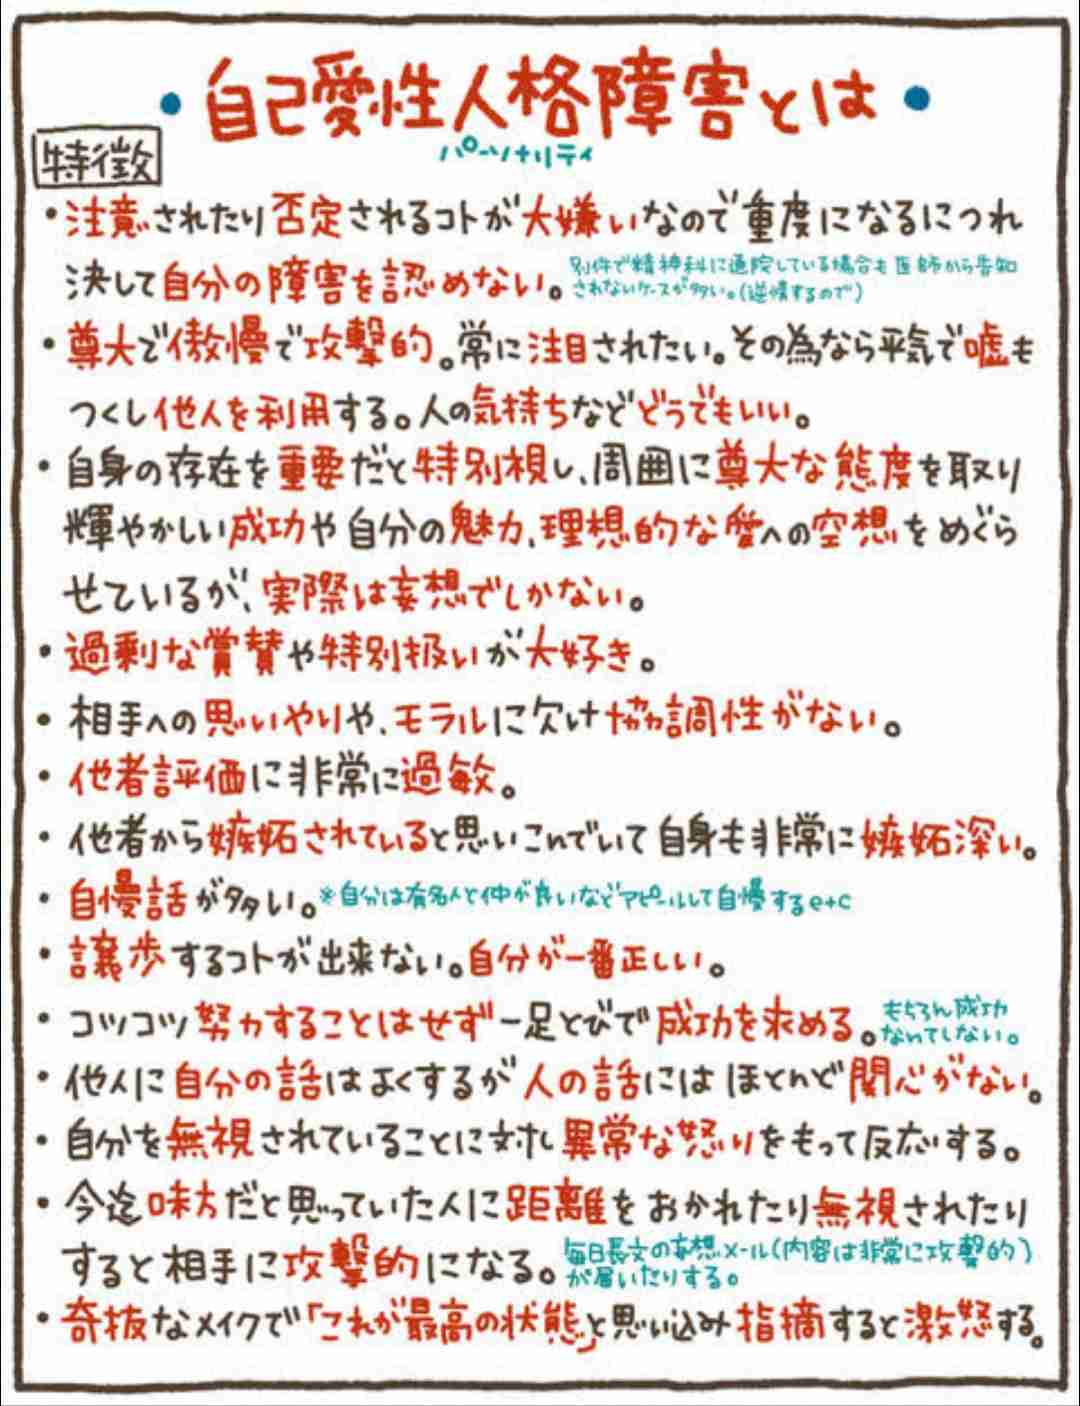 ・自己愛性人格障害とは・
パーソナリティ
特徴
・注意されたり否定されるコトが大嫌いなので重度になるにつれ
決して自分の障害を認めない。
別件で精神科に通院している場合も医師から告知
されないケースが多い。(逆情するので)
・尊大で傲慢で攻撃的。常に注目されたい。その為なら平気で嘘も
つくし他人を利用する。人の気持ちなどどうでもいい。
・自身の存在を重要だと特別視し、周囲に尊大な態度を取り
輝やかしい成功や自分の魅力、理想的な愛への空想をめぐら
せているが、実際は妄想でしかない。
・過剰な賞賛や特別扱いが大好き。
・相手への思いやりや、モラルに欠け協調性がない。
・他者評価に非常に過敏。
・他者から嫉妬されていると思いこんでいて自身も非常に嫉妬深い。
・自慢話が多い。※自分は有名人と仲が良いなどアピールして自慢するetc
・譲歩するコトが出来ない。自分が一番正しい。
・コツコツ努力することはせず一足とびで成功を求める。
もちろん成功
なんてしない。
・他人に自分の話はよくするが人の話にはほとんど関心がない。
・自分を無視されていることに対し異常な怒りをもって反応する。
・今迄味方だと思っていた人に距離をおかれたり無視されたり
すると相手に攻撃的になる。
毎日長文の妄想メール(内容は非常に攻撃的)
が届いたりする。
・奇抜なメイクで「これが最高の状態」と思い込み指摘すると激怒する。